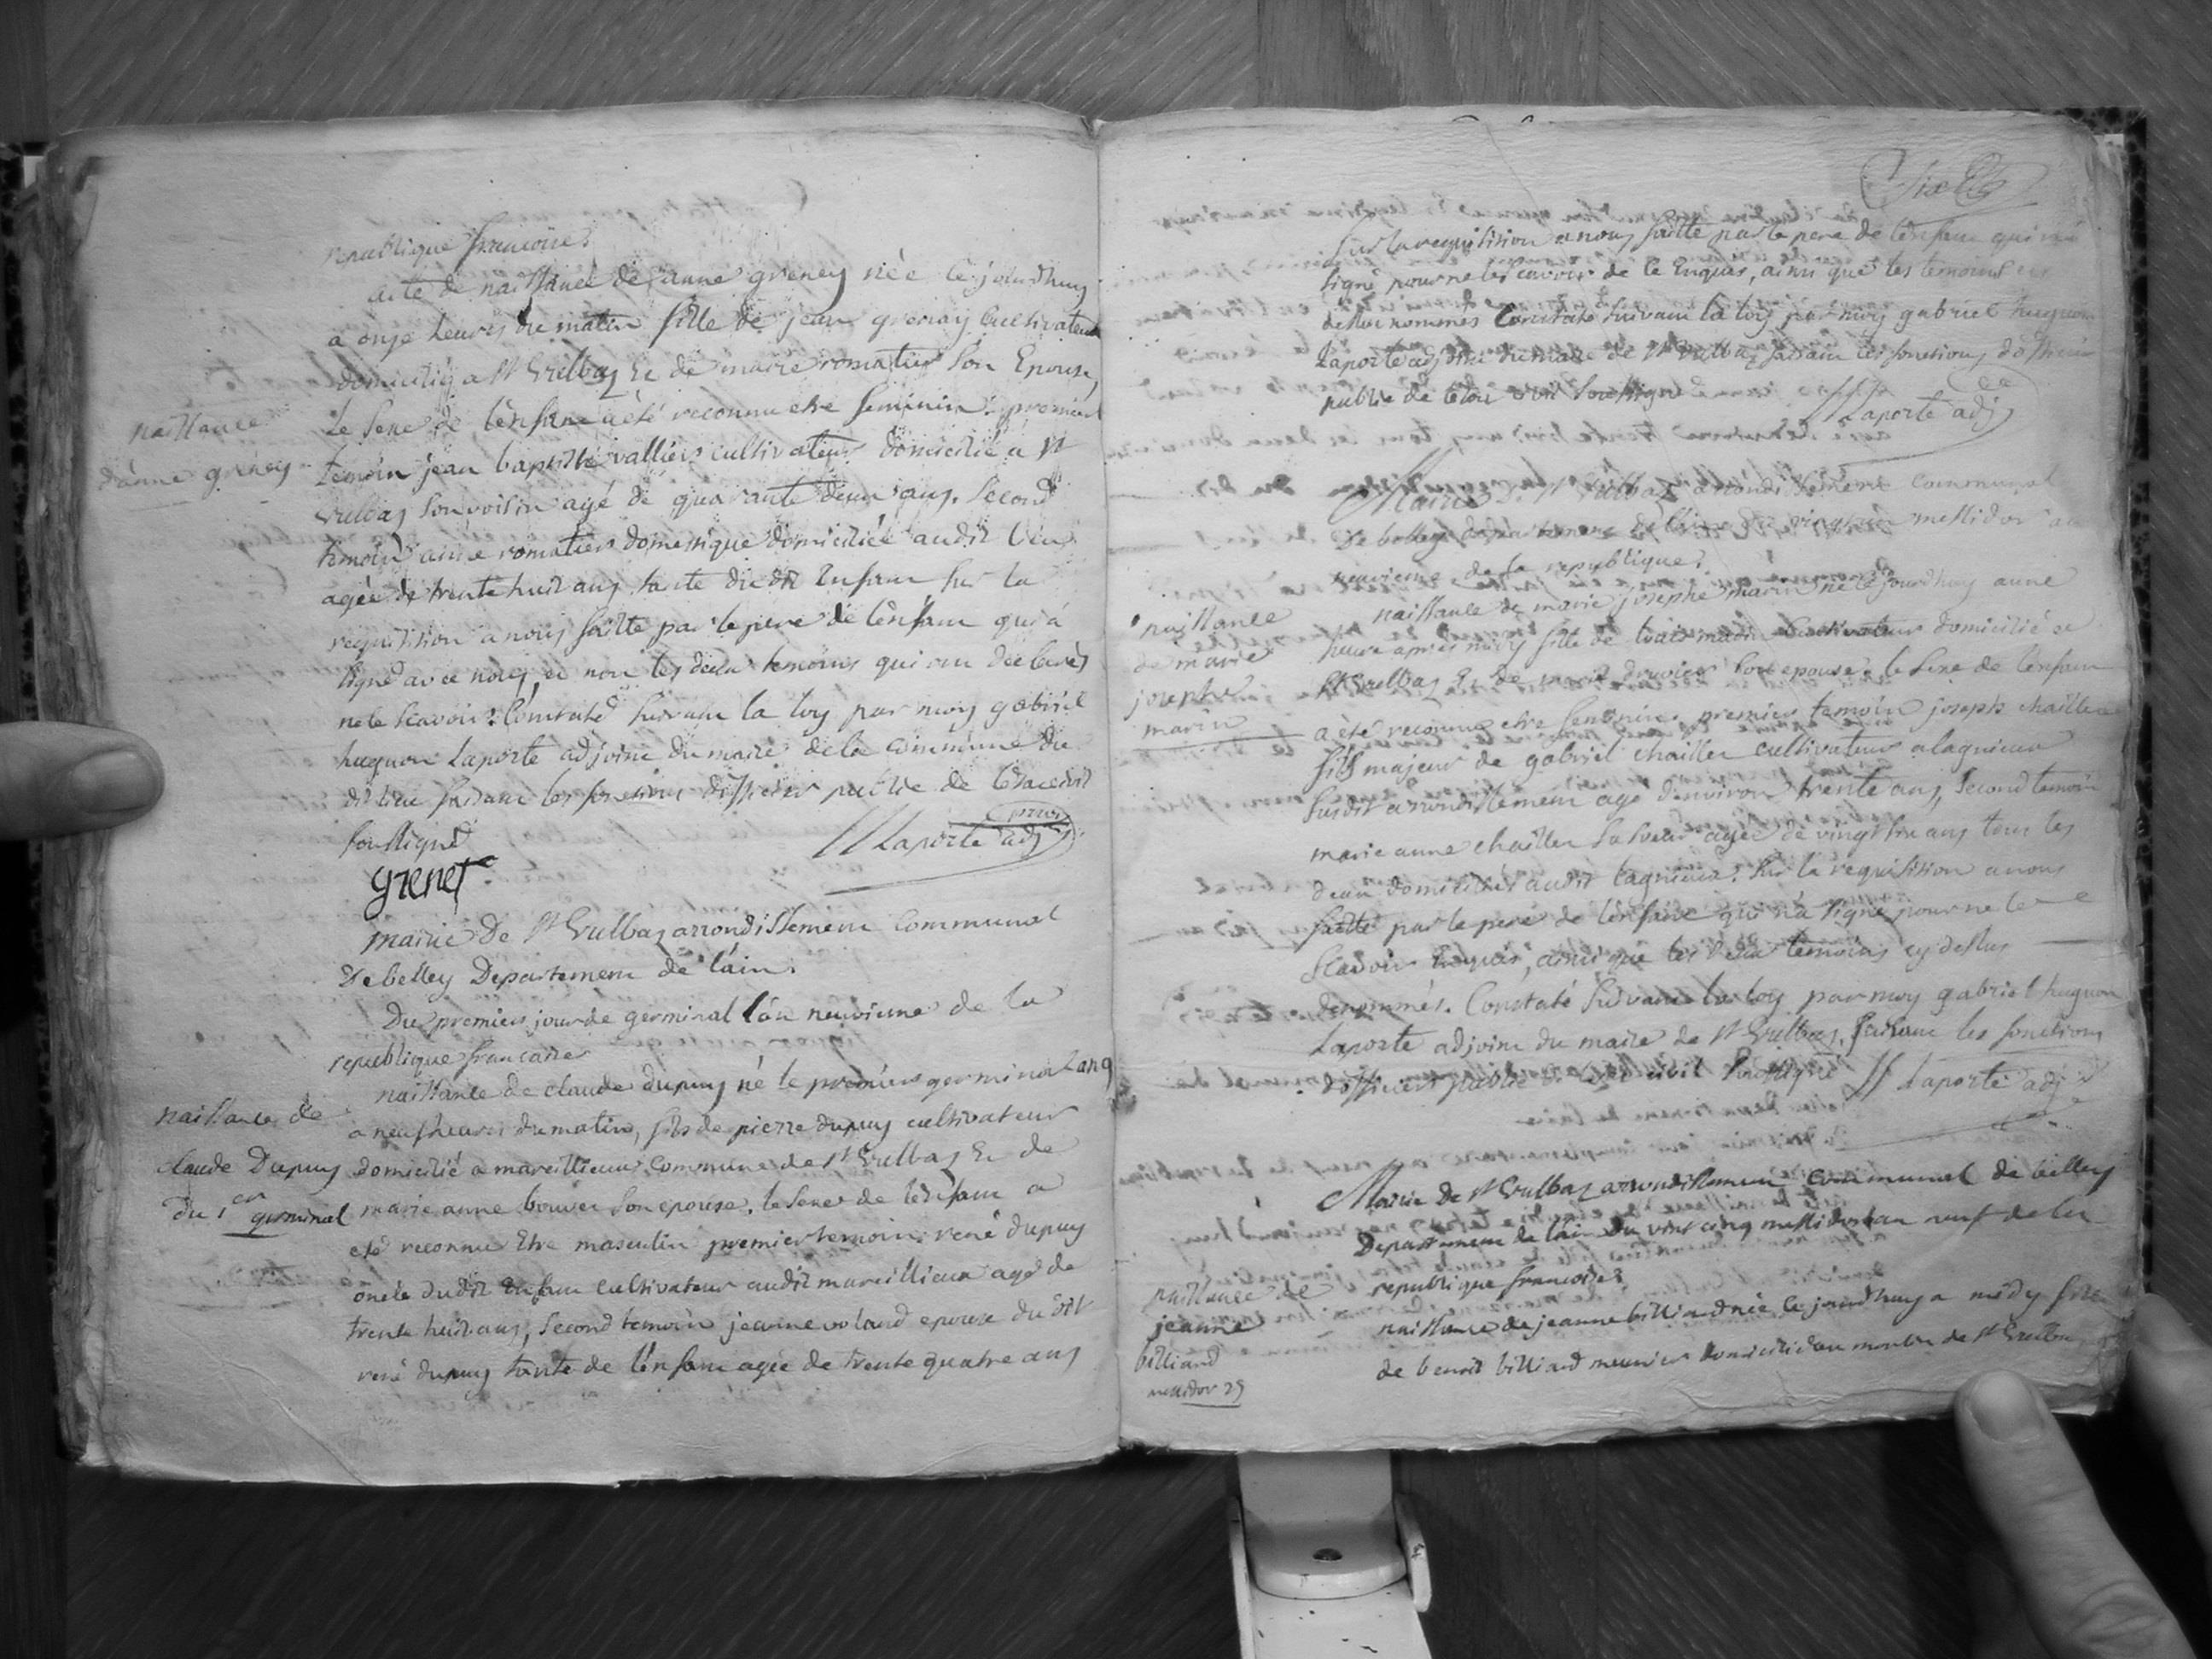 republique francoise
acte de naissance de anne greney née ce jourdhuy
a onze heures du matin fille de jean grenay cultivateur
domicilié a St Vulbaz Et de marie romatier son Epouse,
Le sexe de lènfant a été reconnu etre feminin. premier
naissance
d'anne greney
temoin jean baptiste valliers cultivateur domicilié a St
Vulbaz son voisin agé de quarante deux ans. second
temoin anne romatier domestique domiciliée audit lieu
agée de trente huit ans tante du dit Enfant sur la
requisition a nous faitte par le pere de lènfant qui a
signé avec nous, et non les deux temoins qui ont declarés
ne le scavoir. Constaté suivant la loy par moy gabriel
huguon Laporte adjoint du maire de la commune du
dit lieu faisant les fonctions dofficier public de letat civil
soussigné
Laporte adj
grenet
mairie De St Vulbaz arrondissement Communal
De belley Departement de l'ain.
Du premier jour de germinal l'an neuvieme de la
republique francaise
naissance de claude dupuy né le premier germinal an 9
naissance de
claude Dupuy
du 1er germinal
a neuf heures du matin, fils de pierre dupuy cultivateur
domicilié a marcillieux commune de St Vulbaz Et de
marie anne bouvier son epouse. le sexe de lènfant a
eté reconnu Etre masculin premier temoin rené dupuy
oncle dudit Enfant cultivateur audit marcillieux agé de
trente huit ans, second temoin jeanne voland epouse du dit
rené dupuy tante de lènfant agée de trente quatre ans
Six
Sur la requisition a nous faitte par le pere de lènfant qui n'a
signé pour ne le scavoir de ce Enquis, ainsi que les temoins cy
dessus nommés Constaté suivant la loy par moy gabriel huguon
Laporte adjoint du maire de St Vulbaz faisant les fonctions dofficier
public de letat civil soussigné
Laporte adj
Mairie De St Vulbaz arrondissement communal
De belley departement de l'ain messidor an
neuvieme de la republique
naissance de marie josephe marin née ce jourdhuy a une
naissance
de marie
josephe
marin
heure apres midy fille de louis marin Cultivateur domicilié a
St Vulbaz Et de son epouse. le sexe de lènfant
a été reconnu etre feminin. premier temoin joseph chailler
fils majeur de gabriel chailler cultivateur a lagnieux
susdit arrondissement agé d'environ trente ans, second temoin
marie anne chailler sa soeur agée de vingt six ans tous les
deux domiciliés audit lagnieux. Sur la requisition a nous
faitte par le pere de lènfant qui n'a signé pour ne le
scavoir Enquis, ainsi que les deux temoins cy dessus
denommés. Constaté suivant la loy par moy gabriel huguon
Laporte adjoint du maire de St Vulbaz, faisant les fonctions
dofficier public de letat civil soussigné Laporte adj
Mairie de St Vulbaz arrondissement communal de belley
Departement de l'ain du vint cinq messidor lan neuf de la
republique francoise
naissance de
jeanne
billiard
messidor 25
naissance de jeanne billiard née ce jourdhuy a midy fille
de benoit billiard meunier domicilié au moulin de St Vulbaz